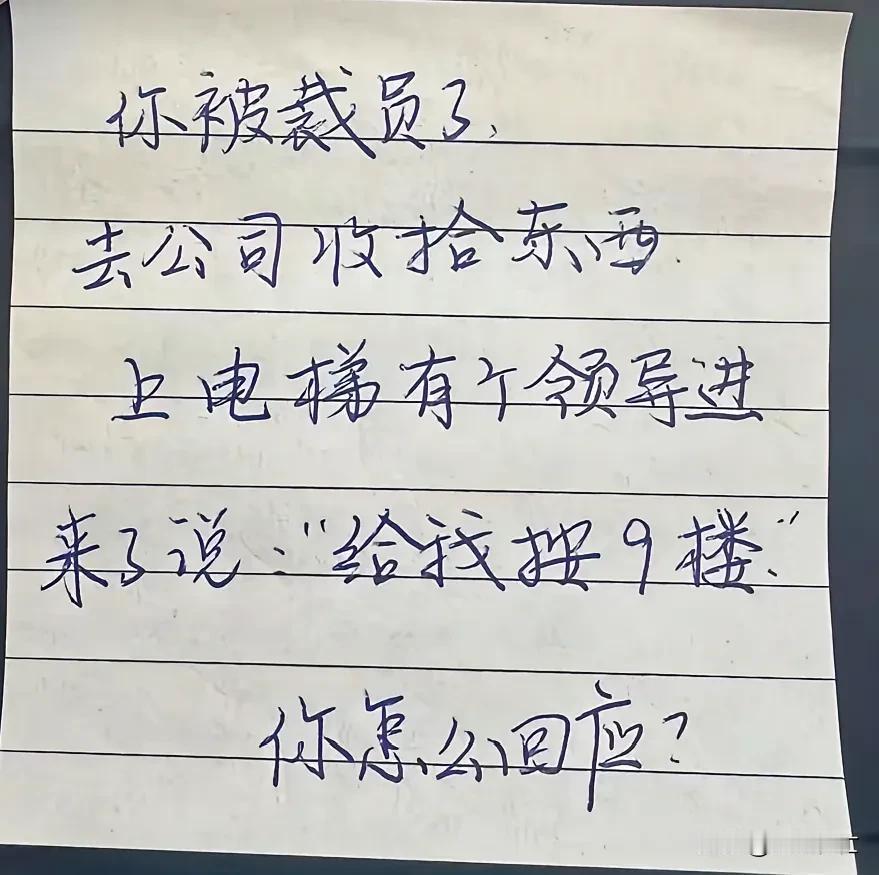 你被裁员了、
去公司收拾东西.
上电梯有个领导进
来了说:"给我按9楼."
你怎么回应?